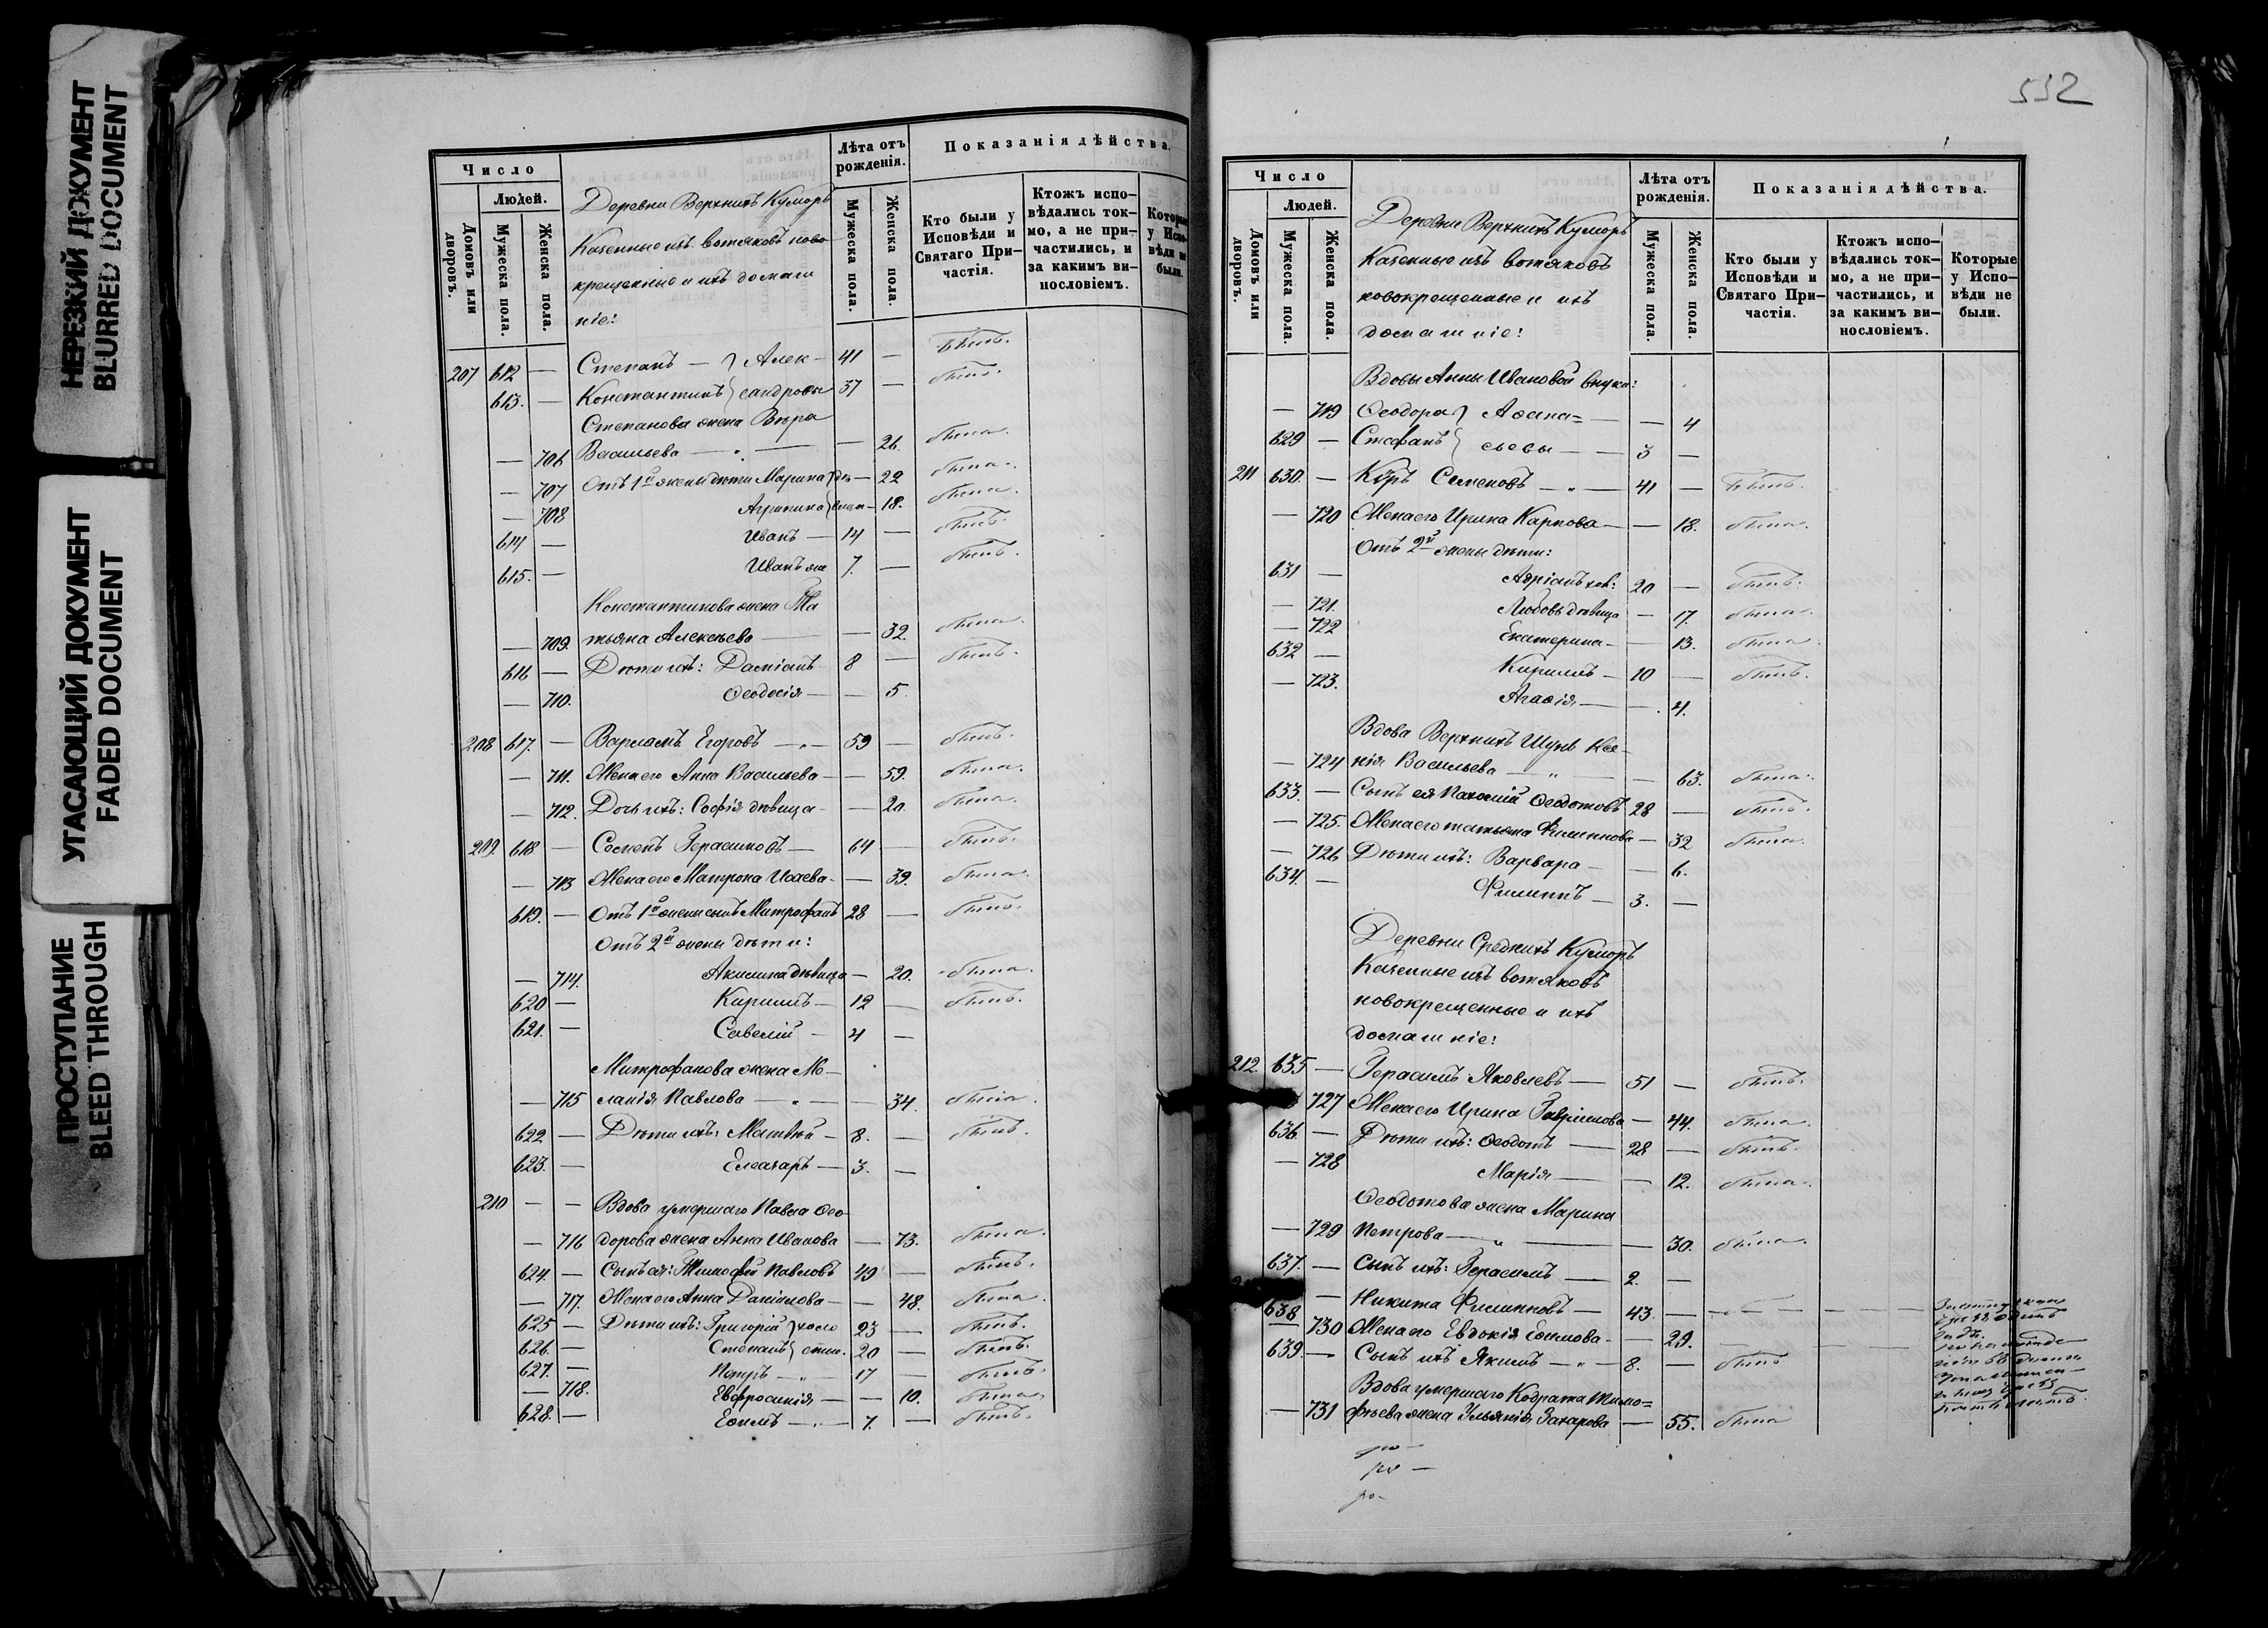 НЕРЕЗКИЙ ДОКУМЕНТ
BLURRED DOCUMENT
УГАСАЮЩИЙ ДОКУМЕНТ
FADED DOCUMENT
ПРОСТУПАНИЕ
BLEED THROUGH
Число
Людей.
Домовъ или дворовъ.
Мужеска пола.
Женска пола.
Деревни Верхнихъ Куморъ
Казенные изъ вотяковъ ново-
крещенные и ихъ домаш
ніе:
Лѣта отъ рожденія.
Мужеска пола.
Женска пола.
Показанія дѣйства.
Кто были у Исповѣди и Святаго При-частія.
Ктожъ испо-вѣдались ток-мо, а не при-частились, и за какимъ ви-нословіемъ.
Которые у Испо-вѣди не были.
207 612 — Степанъ — } Алек- 41 — былъ.
613. — Константинъ } сандровы 37 — былъ.
Степанова жена Вѣра
— 706 Васильева — — 26. была.
— 707 Отъ 1й жены дѣти Марина } дѣ — 22 была.
— 708 Агрипина } вицы — 18. была.
614 — Иванъ — 14 — былъ.
615. — Иванъ же 7. — былъ.
Константинова жена Та
— 709. тьяна Алексѣева — — 32. была.
616 — Дѣти ихъ: Даміанъ 8 — былъ.
— 710. Ѳеодосія — — 5.
208 617. — Варламъ Егоровъ — 59 — былъ.
— 711. Жена его Анна Васильева — — 59. была.
— 712. Дочь ихъ: Софія дѣвица — — 20. была.
209. 618 — Семенъ Герасимовъ — 64 — былъ.
— 713 Жена его Матрона Исаева — — 39. была.
619. — Отъ 1й жены сынъ Митрофанъ 28 — былъ.
Отъ 2й жены дѣти:
— 714. Акилина дѣвица — 20. была.
620 — Кирилъ — 12 — былъ.
621. — Савелій — 4 —
Митрофанова жена Ме-
— 715 ланія Павлова — — 34. была.
622 — Дѣти ихъ: Матвѣй — 8. — былъ.
623. — Елеазаръ — 3. —
210 — — Вдова умершаго Павла Ѳео-
— 716 дорова жена Анна Иванова — 73. была.
624. — Сынъ ея: Тимофей Павловъ 49 — былъ.
— 717. Жена его Анна Даніилова — — 48. была.
625 — Дѣти ихъ: Григорій } холо 23 — былъ.
626. — Степанъ } стые. 20 — былъ.
627. — Петръ — 17 — былъ.
— 718. Евфросинія — — 10. была.
628. — Ефимъ — 7. — былъ.
532
Число
Людей.
Домовъ или дворовъ.
Мужеска пола.
Женска пола.
Деревни Верхнихъ Куморъ
Казенные изъ вотяковъ
новокрещенные и ихъ
домашніе:
Лѣта отъ рожденія.
Мужеска пола.
Женска пола.
Показанія дѣйства.
Кто были у Исповѣди и Святаго При-частія.
Ктожъ испо-вѣдались ток-мо, а не при-частились, и за какимъ ви-нословіемъ.
Которые у Испо-вѣди не были.
Вдовы Анны Ивановой внуки:
— 719 Ѳеодора } Аѳана= — — 4
629 — Стефанъ } сьевы — 3 —
211 630. — Кѵръ Семеновъ — 41 — былъ.
— 720 Жена его Ирина Карпова — — 18. была.
Отъ 2й жены дѣти:
631 — Адріанъ хол: 20 — былъ.
— 721. Любовь дѣвица — 17. была.
— 722 Екатерина — — 13. была.
632 — Кирилъ — 10 — былъ.
— 723. Агафія — — 4.
Вдова Верхнихъ Шунъ Ксе-
— 724 нія Васильева — — 63. была.
633. — Сынъ ея Пахомій Ѳедотовъ 28 — былъ.
— 725. Жена его татьяна Филиппова — 32 была.
— 726 Дѣти ихъ: Варвара — — 6.
634. — Филиппъ — 3. —
Деревни Среднихъ Куморъ
Казенные изъ вотяковъ
новокрещенные и ихъ
домашніе:
212. 635 — Герасимъ Яковлевъ — 51 — былъ.
727 Жена его Ирина Гавріилова — 44. была.
636. — Дѣти ихъ: Ѳеодотъ — 28 — былъ.
— 728 Марія — — 12. была.
Ѳеодотова жена Марина
— 729 Петрова — — 30. была.
637. — Сынъ ихъ: Герасимъ — 2. —
638 — Никита Филипповъ — 43. —
730 Жена его Евдокія Ефимова — — 29.
639. — Сынъ ихъ Якимъ — 8. — былъ
Вдова умершаго Кодрата Тимо=
— 731 фѣева жена Ульянія Захарова — 55. была